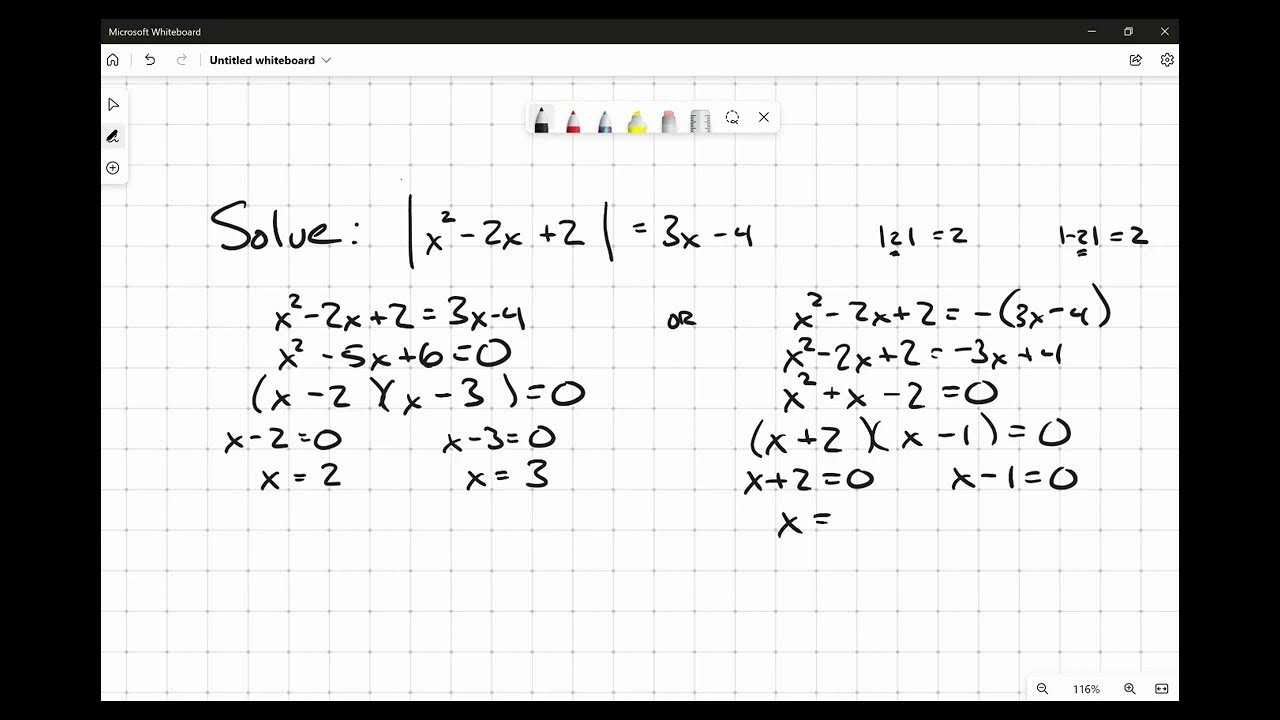 Microsoft Whiteboard
Untitled whiteboard
Solve: |x² - 2x + 2| = 3x - 4 |2| = 2 |-2| = 2
x² - 2x + 2 = 3x - 4 OR x² - 2x + 2 = -(3x - 4)
x² - 5x + 6 = 0 x² - 2x + 2 = -3x + 4
(x - 2)(x - 3) = 0 x² + x - 2 = 0
x - 2 = 0 x - 3 = 0 (x + 2)(x - 1) = 0
x = 2 x = 3 x + 2 = 0 x - 1 = 0
x =
116%